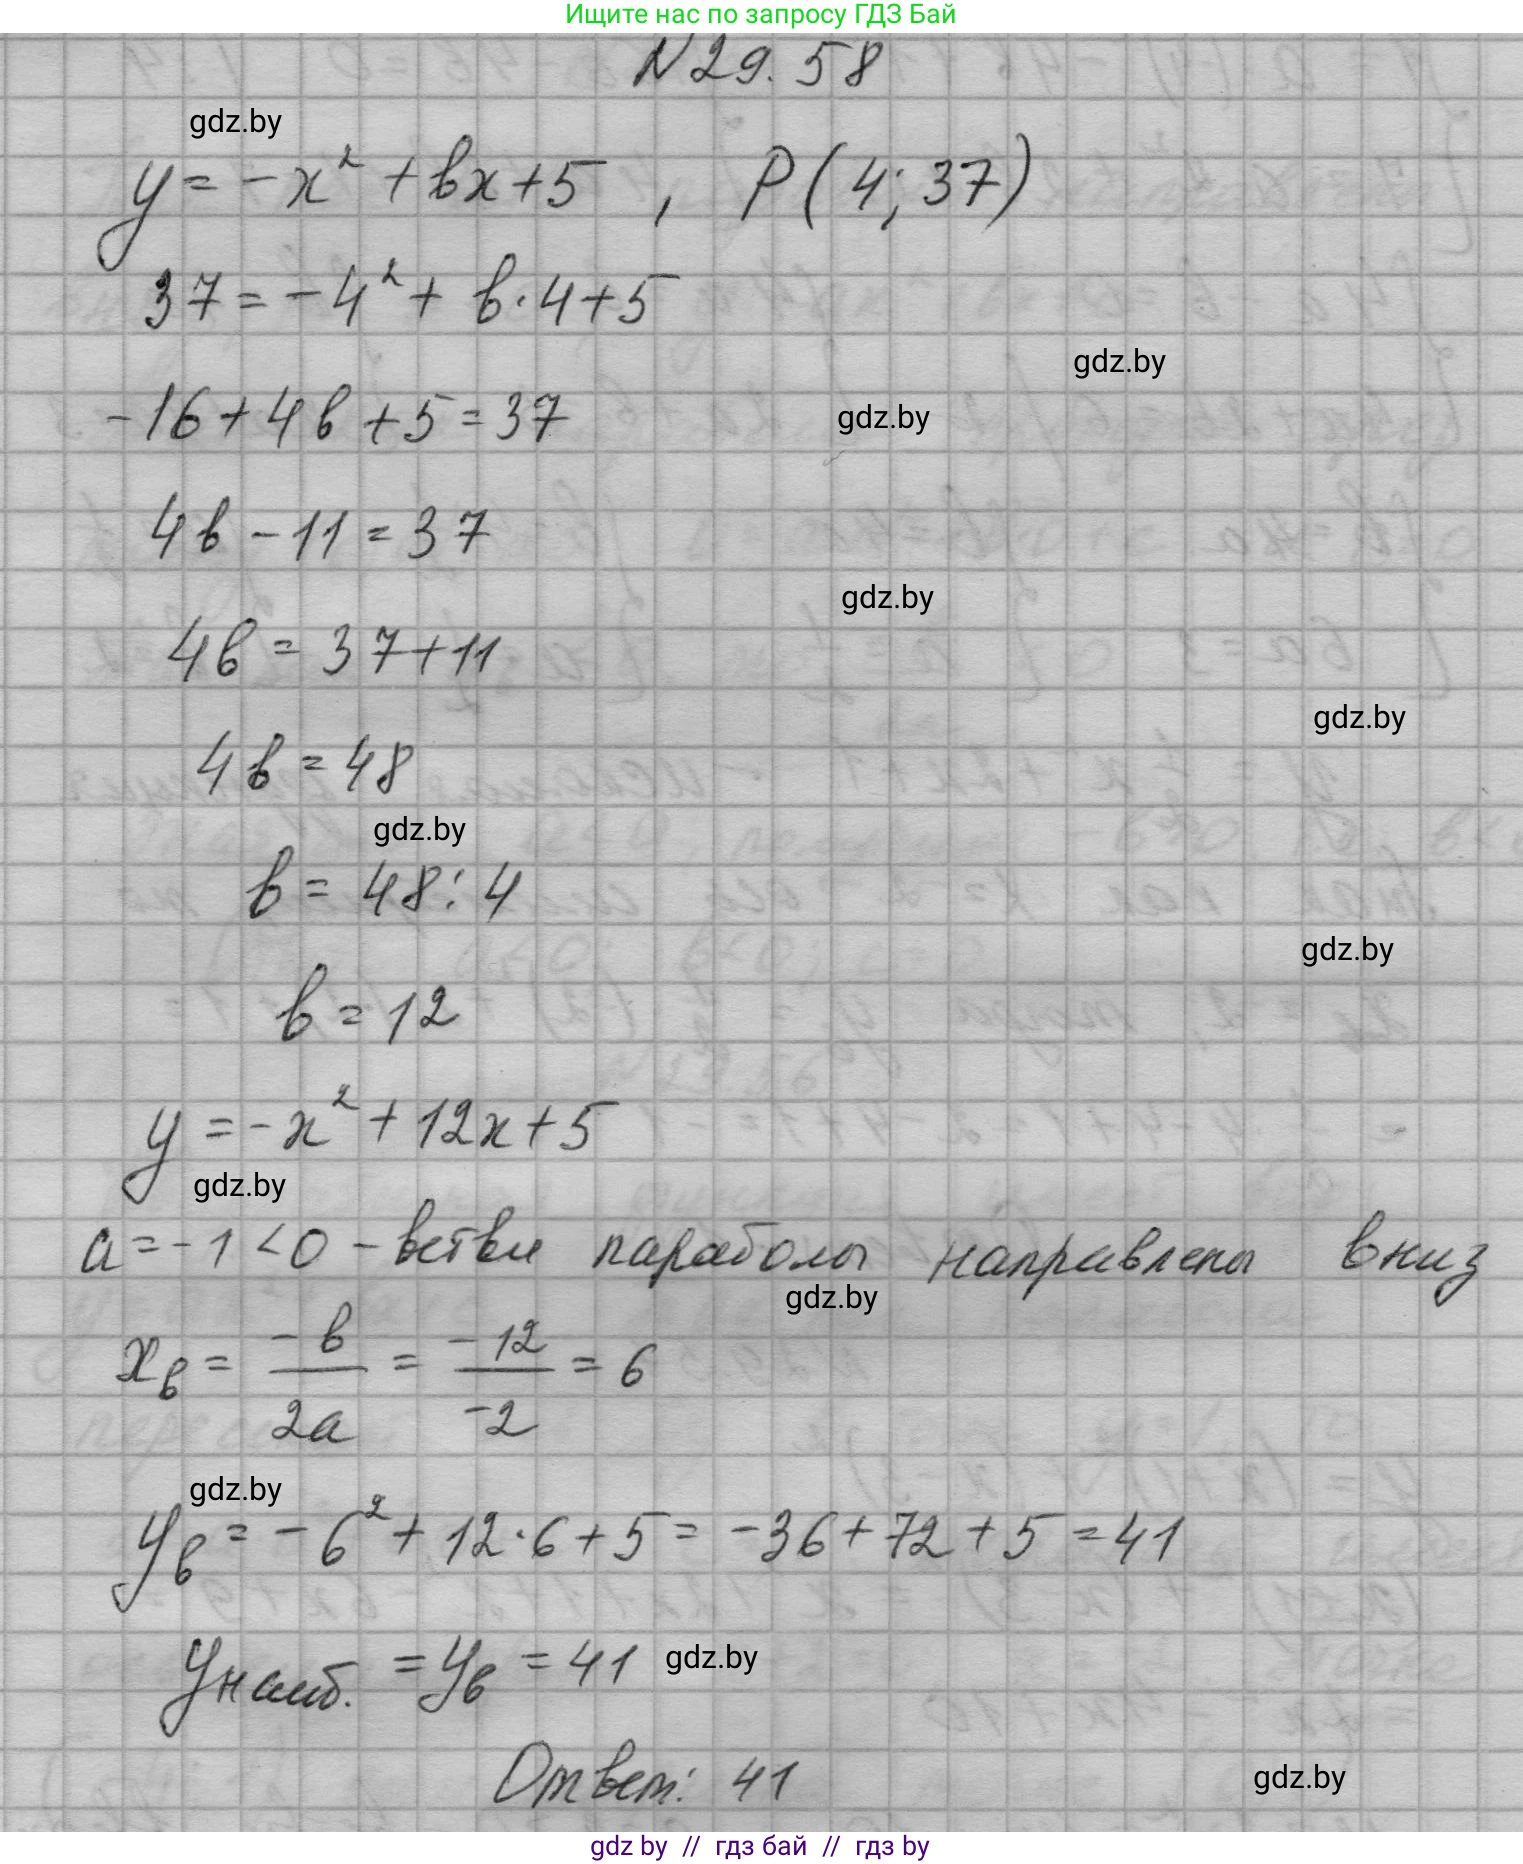 Ищите нас по запросу ГДЗ Бай
№29.58
gdz.by
y = -x² + bx + 5 , P(4; 37)
37 = -4² + b·4 + 5
gdz.by
-16 + 4b + 5 = 37
gdz.by
4b - 11 = 37
gdz.by
4b = 37 + 11
gdz.by
4b = 48
gdz.by
b = 48 : 4
gdz.by
b = 12
y = -x² + 12x + 5
gdz.by
a = -1 < 0 - ветви параболы направлены вниз
gdz.by
xв = -b/2a = -12/-2 = 6
gdz.by
yв = -6² + 12·6 + 5 = -36 + 72 + 5 = 41
yнаиб. = yв = 41 gdz.by
Ответ: 41
gdz.by
gdz by // гдз бай // гдз by